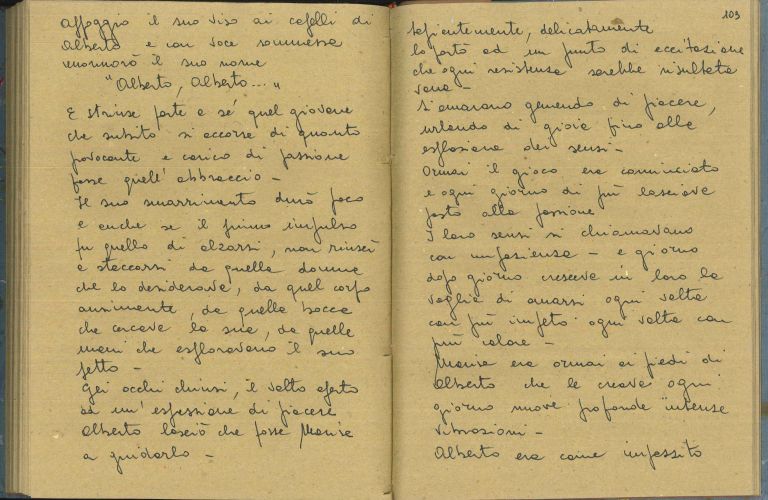 appoggiò il suo viso ai capelli di
Alberto e con voce sommessa
mormorò il suo nome
"Alberto, Alberto...."
E strinse forte a sé quel giovane
che subito si accorse di quanto
provocante e carico di passione
fosse quell'abbraccio -
Il suo smarrimento durò poco
e anche se il primo impulso
fu quello di alzarsi, non riuscì
a staccarsi da quella donna
che lo desiderava, da quel corpo
ansimante, da quella bocca
che cercava la sua, da quelle
mani che esploravano il suo
petto -
Gli occhi chiusi, il volto aperto
ad un'espessione di piacere
Alberto lasciò che fosse Marisa
a guidarlo -
103
Sapientemente, delicatamente
lo portò ad un punto di eccitazione
che ogni resistenza sarebbe risultata
vana -
Si amarono gemendo di piacere,
urlando di gioia fino alla
esplosione dei sensi -
Ormai il gioco era cominciato
e ogni giorno di più lasciava
posto alla passione
I loro sensi si chiamavano
con impazienza - e giorno
dopo giorno cresceva in loro la
voglia di amarsi ogni volta
con più impeto ogni volta con
più calore -
Marisa era ormai ai piedi di
Alberto che le creava ogni
giorno nuove profonde intense
vibrazioni -
Alberto era come impazzito